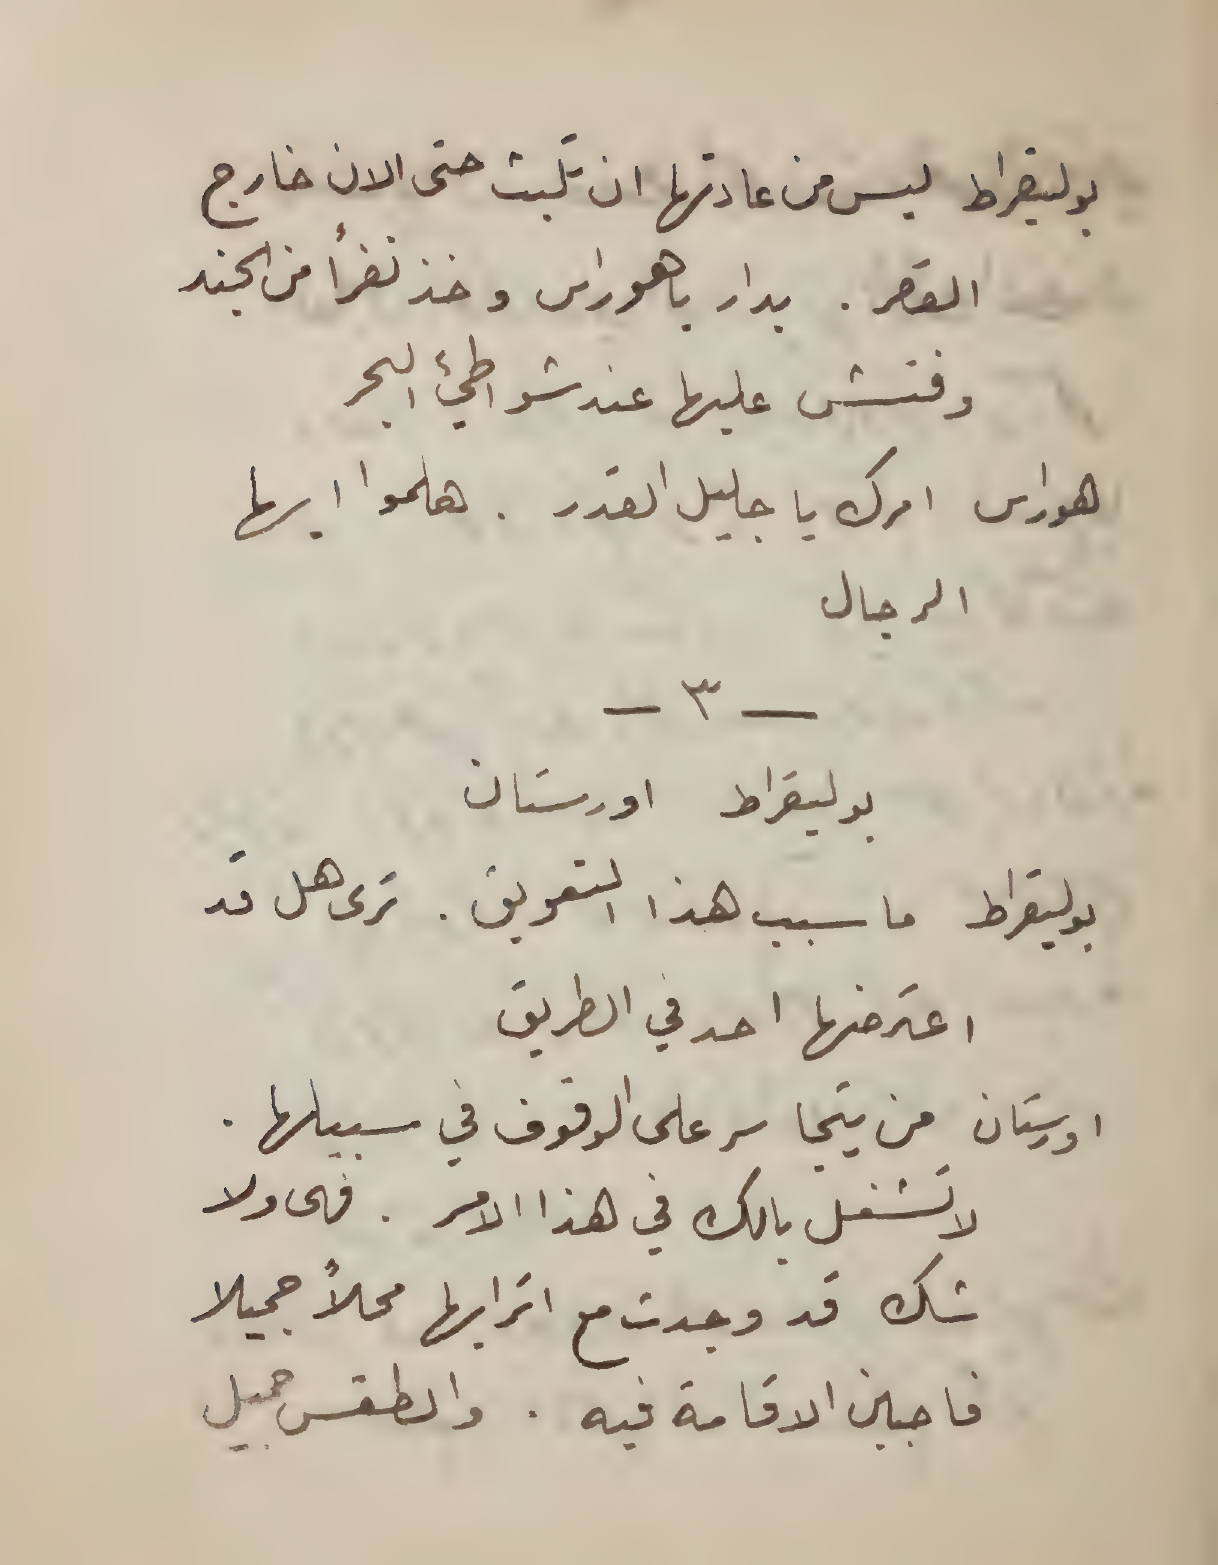 بوليقراط ليس من عادتها ان تلبث حتى الان خارج
القصر . بدار ياهوراس وخذ نفرأ من الجند
وفتش عليها عند شواطئ البحر
هوراس امرك يا جليل القدر . هلموا ايها
الرجال
— ٣ —
بوليقراط اورستان
بوليقراط ما سبب هذا التعويق . ترى هل قد
اعترضها احد في الطريق
اورستان من يتجاسر على الوقوف في سبيلها .
لا تشغل بالك في هذا الامر . فهى ولا
شك قد وجدت مع اترابها محلاً جميلا
فاحبين الاقامة فيه . والطقس جميل